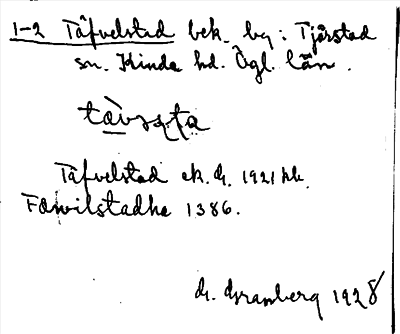 1-2 Täfvelstad bek. by: Tjärstad
sn. Kinda hd. Ögl. län.
Täfvelstad ek. G. 1921 hk.
Fawilstadha 1386.
G. Granberg 1928